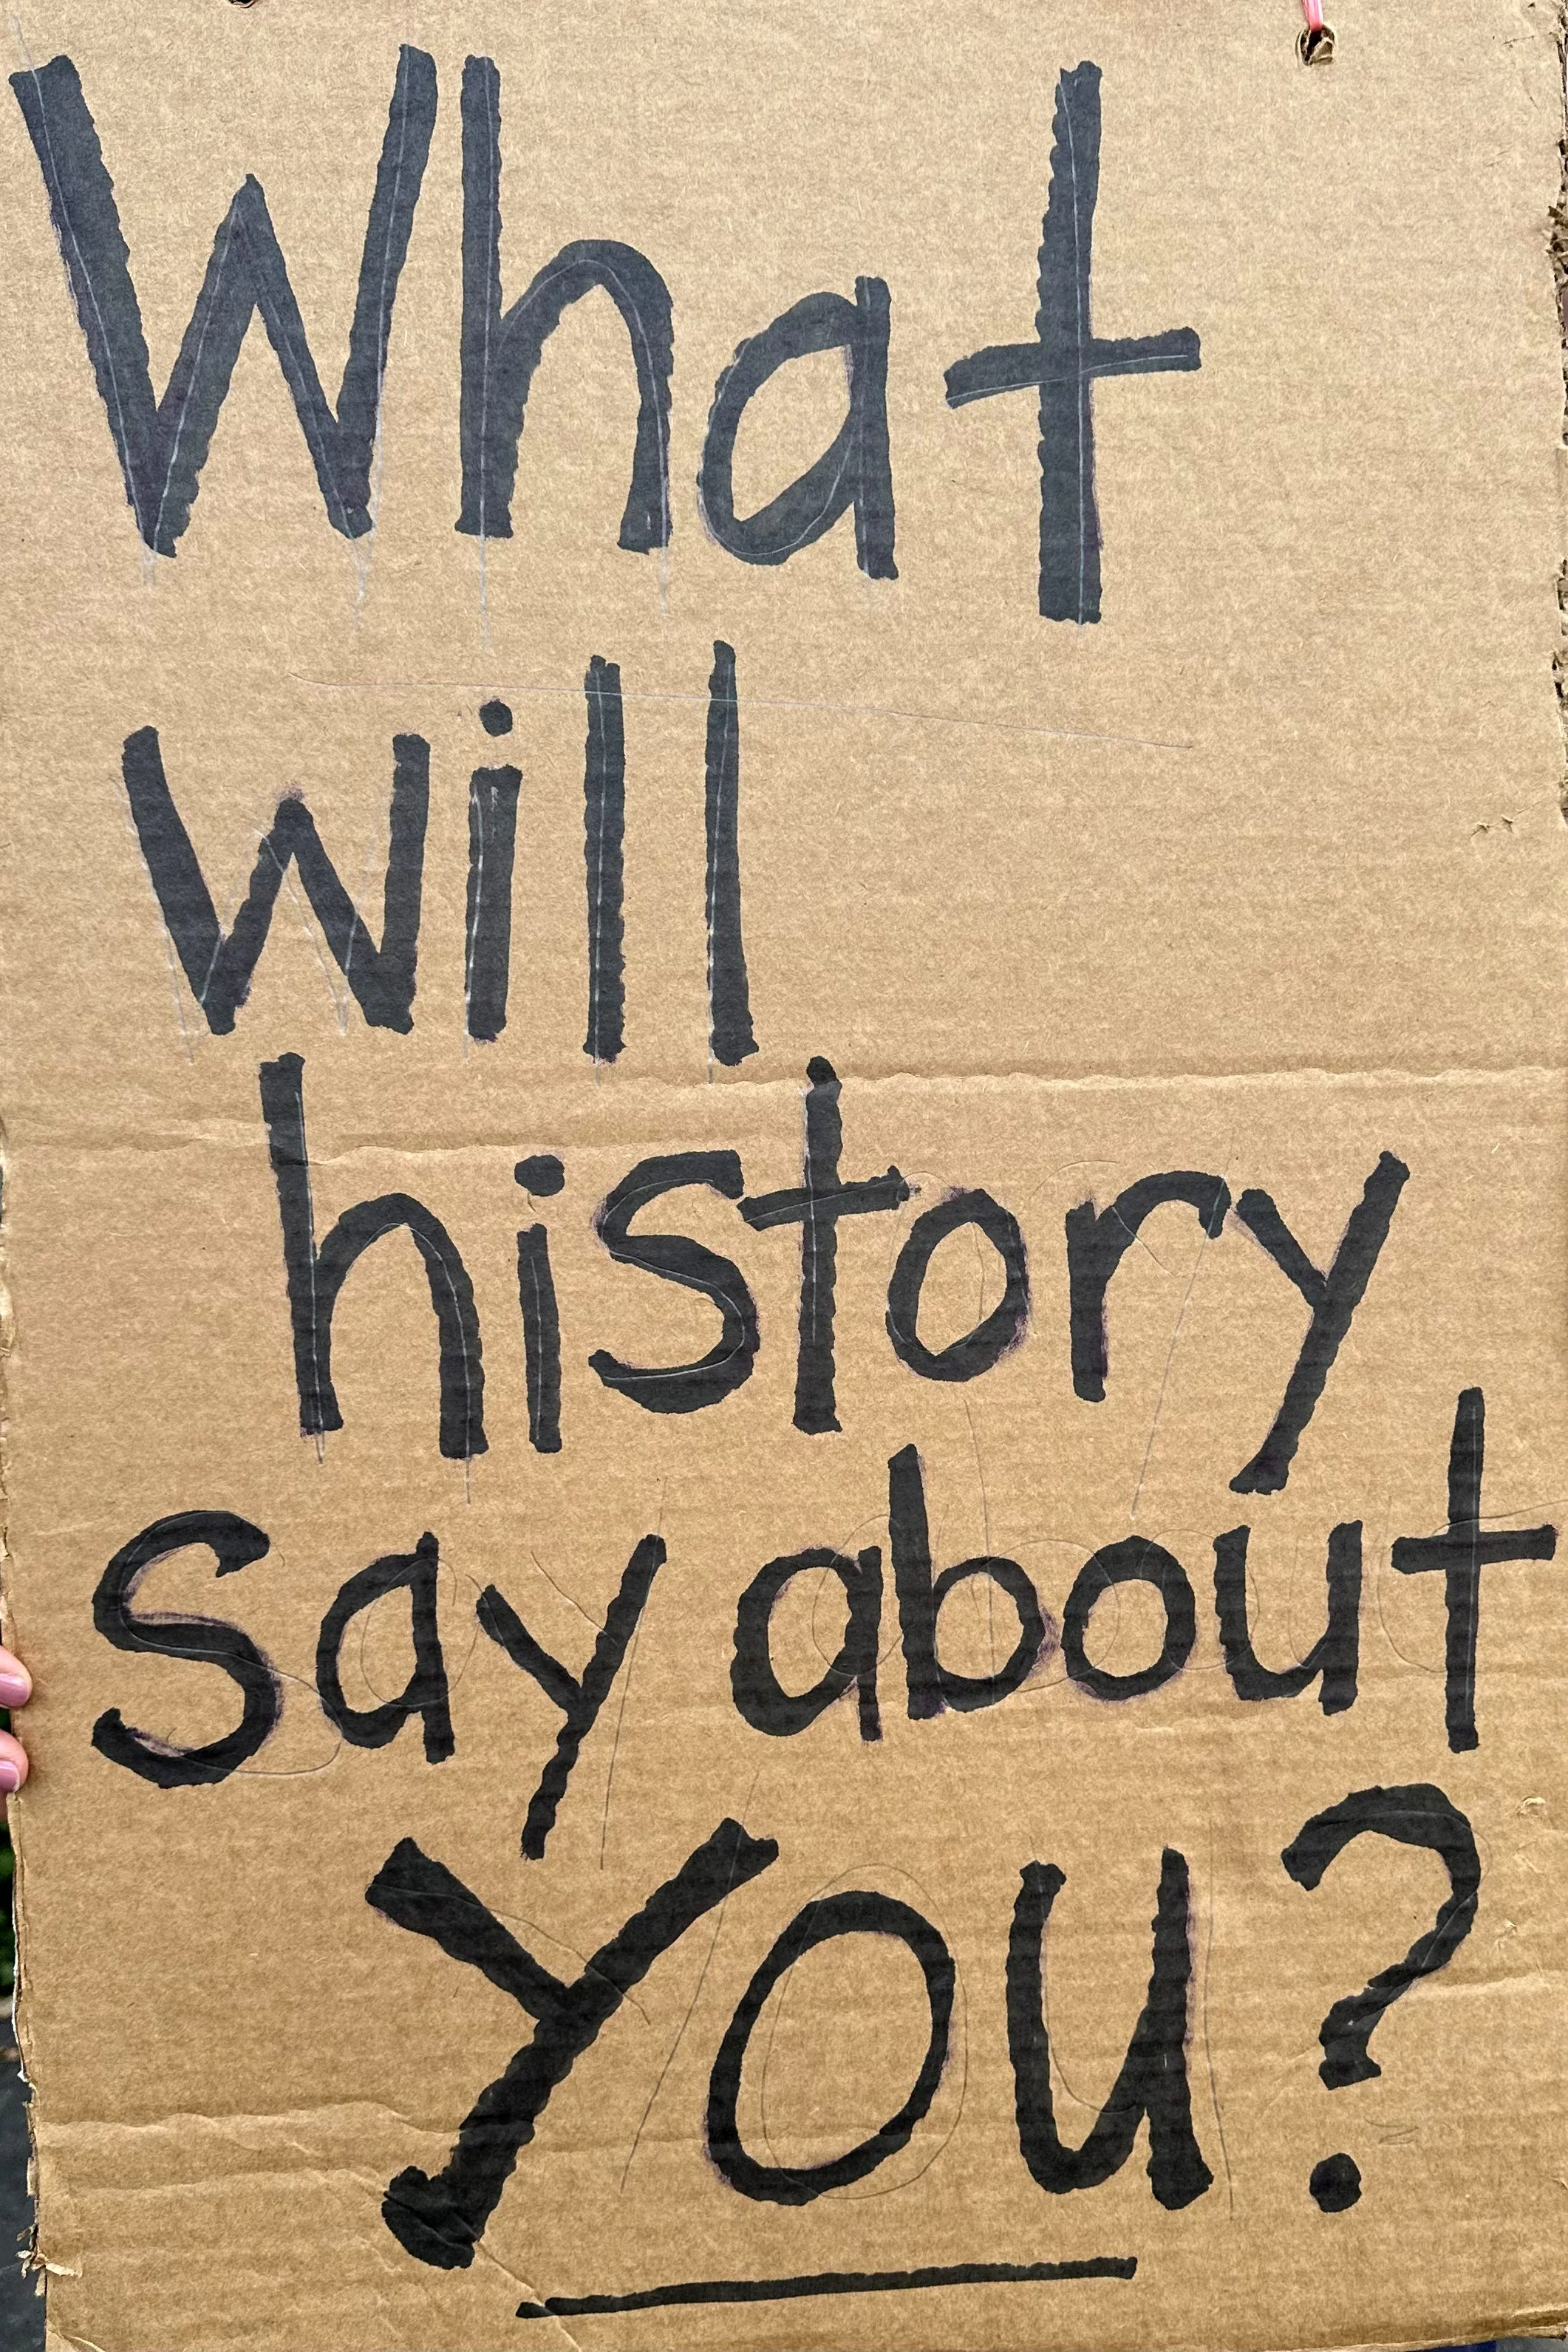 What
will
history
say about
YOU?